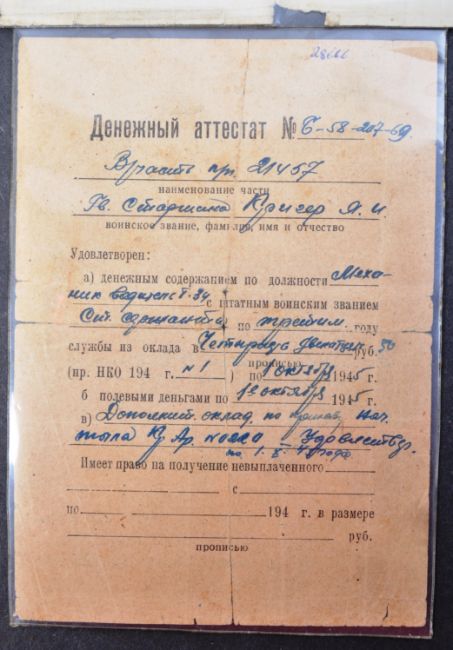 Денежный аттестат № Б-58-207-69
В/часть пп. 21457
наименование части
Гв. Старшина Кригер Я. И
воинское звание, фамилия, имя и отчество
Удовлетворен:
а) денежным содержанием по должности Меха-
ник водитель Т-34 с штатным воинским званием
Ст. сержант по третьему году
службы из оклада в руб. 50
прописью
(пр. НКО 194 г. № 1) по 1 октября 1945 г.
б полевыми деньгами по 1 октября 1945 г.
в) Дополнит. оклад по приказу Нач.
тыла Кр Ар.
по 1.
Имеет право на получение невыплаченного
с
по 194 г. в размере
руб.
прописью